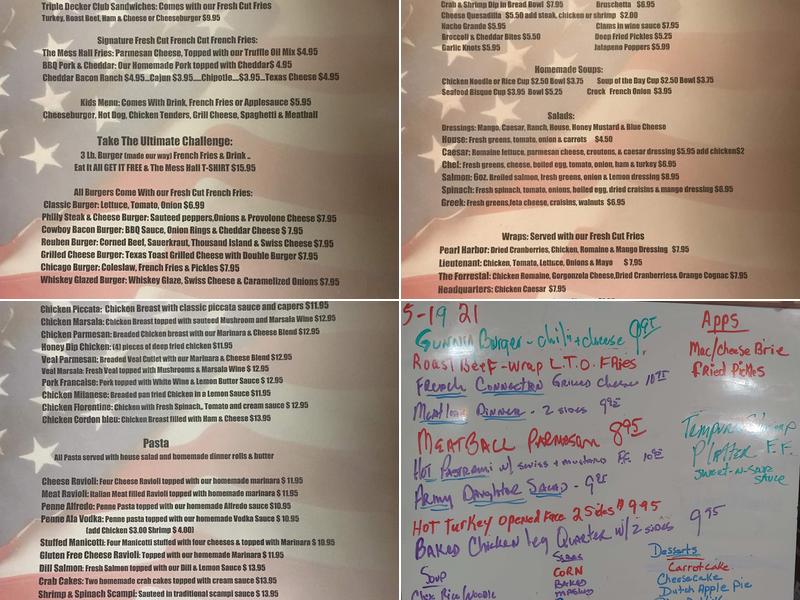 Triple Decker Club Sandwiches: Comes with our Fresh Cut Fries
Turkey, Roast Beef, Ham & Cheese or Cheeseburger $9.95
Signature Fresh Cut French Cut French Fries:
The Mess Hall Fries: Parmesan Cheese, Topped with our Truffle Oil Mix $4.95
BBQ Pork & Cheddar: Our Homemade Pork topped with Cheddar$ 4.95
Cheddar Bacon Ranch $4.95...Cajun $3.95....Chipotle....$3.95...Texas Cheese $4.95
Kids Menu: Comes With Drink, French Fries or Applesauce $5.95
Cheeseburger, Hot Dog, Chicken Tenders, Grill Cheese, Spaghetti & Meatball
Take The Ultimate Challenge:
3 Lb. Burger (made our way) French Fries & Drink ..
Eat It All GET IT FREE & The Mess Hall T-SHIRT $15.95
All Burgers Come With our Fresh Cut French Fries:
Classic Burger: Lettuce, Tomato, Onion $6.99
Philly Steak & Cheese Burger: Sauteed peppers,Onions & Provolone Cheese $7.95
Cowboy Bacon Burger: BBQ Sauce, Onion Rings & Cheddar Cheese $ 7.95
Reuben Burger: Corned Beef, Sauerkraut, Thousand Island & Swiss Cheese $7.95
Grilled Cheese Burger: Texas Toast Grilled Cheese with Double Burger $7.95
Chicago Burger: Coleslaw, French Fries & Pickles $7.95
Whiskey Glazed Burger: Whiskey Glaze, Swiss Cheese & Caramelized Onions $7.95
Crab & Shrimp Dip in Bread Bowl $7.95 Bruschetta $6.95
Cheese Quesadilla $5.50 add steak, chicken or shrimp $2.00
Nacho Grande $5.95 Clams in wine sauce $7.95
Broccoli & Cheddar Bites $5.50 Deep Fried Pickles $5.25
Garlic Knots $5.95 Jalapeno Poppers $5.99
Homemade Soups:
Chicken Noodle or Rice Cup $2.50 Bowl $3.75 Soup of the Day Cup $2.50 Bowl $3.75
Seafood Bisque Cup $3.95 Bowl $5.25 Crock French Onion $3.95
Salads:
Dressings: Mango, Caesar, Ranch, House, Honey Mustard & Blue Cheese
House: Fresh greens, tomato, onion & carrots $4.50
Caesar: Romaine lettuce, parmesan cheese, croutons, & caesar dressing $5.95 add chicken$2
Chef: Fresh greens, cheese, boiled egg, tomato, onion, ham & turkey $6.95
Salmon: 6oz. Broiled salmon, fresh greens, onion & Lemon dressing $8.95
Spinach: Fresh spinach, tomato, onions, boiled egg, dried craisins & mango dressing $8.95
Greek: Fresh greens,feta cheese, craisins, walnuts $6.95
Wraps: Served with our Fresh Cut Fries
Pearl Harbor: Dried Cranberries, Chicken, Romaine & Mango Dressing $7.95
Lieutenant: Chicken, Tomato, Lettuce, Onions & Mayo $7.95
The Forrestal: Chicken Romaine, Gorgonzola Cheese,Dried Cranberries& Orange Cognac $7.95
Headquarters: Chicken Caesar $7.95
Chicken Piccata: Chicken Breast with classic piccata sauce and capers $11.95
Chicken Marsala: Chicken Breast topped with sauteed Mushroom and Marsala Wine $12.95
Chicken Parmesan: Breaded Chicken breast with our Marinara & Cheese Blend $12.95
Honey Dip Chicken: (4) pieces of deep fried chicken $11.95
Veal Parmesan: Breaded Veal Cutlet with our Marinara & Cheese Blend $12.95
Veal Marsala: Fresh Veal topped with Mushrooms & Marsala Wine $ 12.95
Pork Francaise: Pork topped with White Wine & Lemon Butter Sauce $ 12.95
Chicken Milanese: Breaded pan fried Chicken in a Lemon Sauce $11.95
Chicken Florentine: Chicken with Fresh Spinach,, Tomato and cream sauce $ 12.95
Chicken Cordon bleu: Chicken Breast filled with Ham & Cheese $13.95
Pasta
All Pasta served with house salad and homemade dinner rolls & butter
Cheese Ravioli: Four Cheese Ravioli topped with our homemade marinara $ 11.95
Meat Ravioli: Italian Meat filled Ravioli topped with homemade marinara $ 11.95
Penne Alfredo: Penne Pasta topped with our homemade Alfredo sauce $10.95
Penne Ala Vodka: Penne pasta topped with our homemade Vodka Sauce $ 10.95
(add Chicken $3.00 Shrimp $4.00)
Stuffed Manicotti: Four Manicotti stuffed with four cheeses & topped with Marinara $ 10.95
Gluten Free Cheese Ravioli: Topped with our homemade Marinara $ 11.95
Dill Salmon: Fresh Salmon topped with our Dill & Lemon Sauce $ 13.95
Crab Cakes: Two homemade crab cakes topped with cream sauce $13.95
Shrimp & Spinach Scampi: Sauteed in traditional scampi sauce $ 13.95
5-19 21
Gunnin Burger - chili + cheese 9.95
Roast Beef - wrap L.T.O. Fries
French Connection Grilled cheese 10.95
Meatloaf Dinner - 2 sides 9.95
MeatBall Parmasan 8.95
Hot Pastrami w/ swiss + mustard FF. 10.95
Army Daughter Salad - 9.95
Hot Turkey Opened Face 2 Sides $9.95
Baked Chicken Leg Quarter w/ 2 sides 9.95
Apps
Mac/cheese Brie
fried Pickles
Tempura Shrimp
Platter F.F.
Sweet-n-Sour
sauce
Soup
Chix Rice/Noodle
Sides
Corn
Baked
Mashed
Desserts
Carrotcake
Cheesecake
Dutch Apple Pie